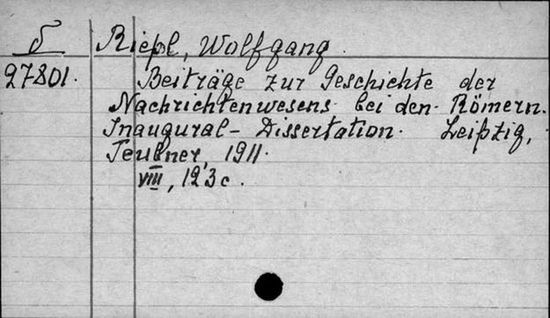 б Riepl, Wolfgang.
27801. Beiträge zur Geschichte der
Nachrichtenwesens bei den Römern.
Inaugural-Dissertation. Leipzig,
Teubner, 1911.
VIII, 123 c.